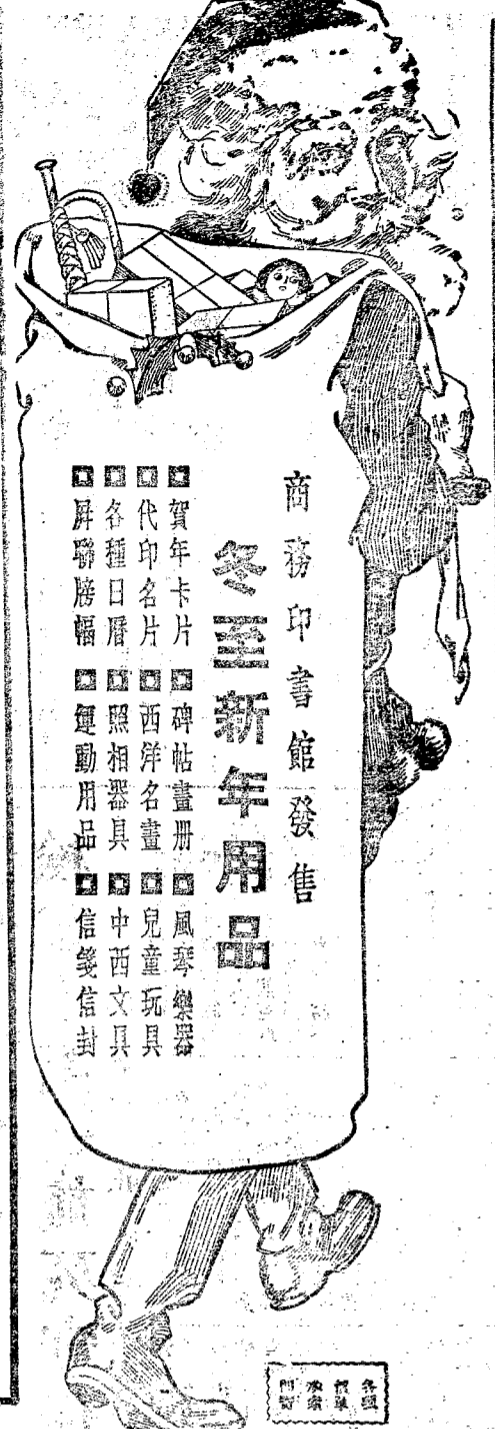 商務印書館發售
冬至新年用品
▣賀年卡片▣碑帖畫册▣風琴樂器
▣代印名片▣西洋名畫▣兒童玩具
▣各種日曆▣照相器具▣中西文具
▣屏聯牓幅▣運動用品▣信箋信封